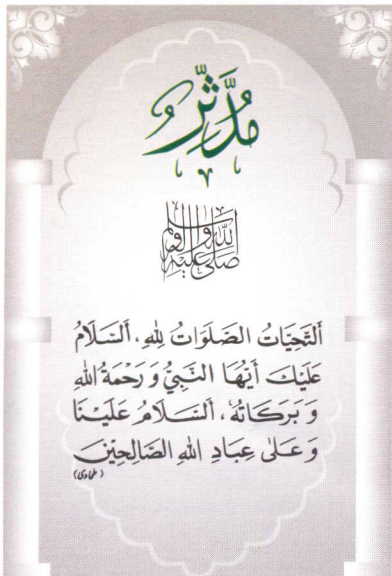 مُدَّثِّرُ
صَلَّى اللّٰهُ عَلَيْهِ وَآلِهِ وَسَلَّم
اَلتَّحِيَّاتُ الصَّلَوَاتُ لِلّٰهِ، اَلسَّلَامُ
عَلَيْكَ اَيُّهَا النَّبِيُّ وَ رَحْمَةُ اللّٰهِ
وَ بَرَكَاتُهٗ، اَلسَّلَامُ عَلَيْنَا
وَ عَلٰى عِبَادِ اللّٰهِ الصَّالِحِيْنَ
(طحاوی)